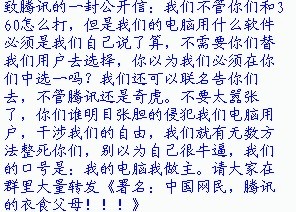 致腾讯的一封公开信：我们不管你们和3
60怎么打，但是我们的电脑用什么软件
必须是我们自己说了算，不需要你们替
我们用户去选择，你以为我们必须在你
们中选一吗？我们还可以联名告你们
去，不管腾讯还是奇虎。不要太嚣张
了，你们谁明目张胆的侵犯我们电脑用
户，干涉我们的自由，我们就有无数方
法整死你们，别以为自己很牛逼，我们
的口号是：我的电脑我做主。请大家在
群里大量转发《署名：中国网民，腾讯
的衣食父母！！！》